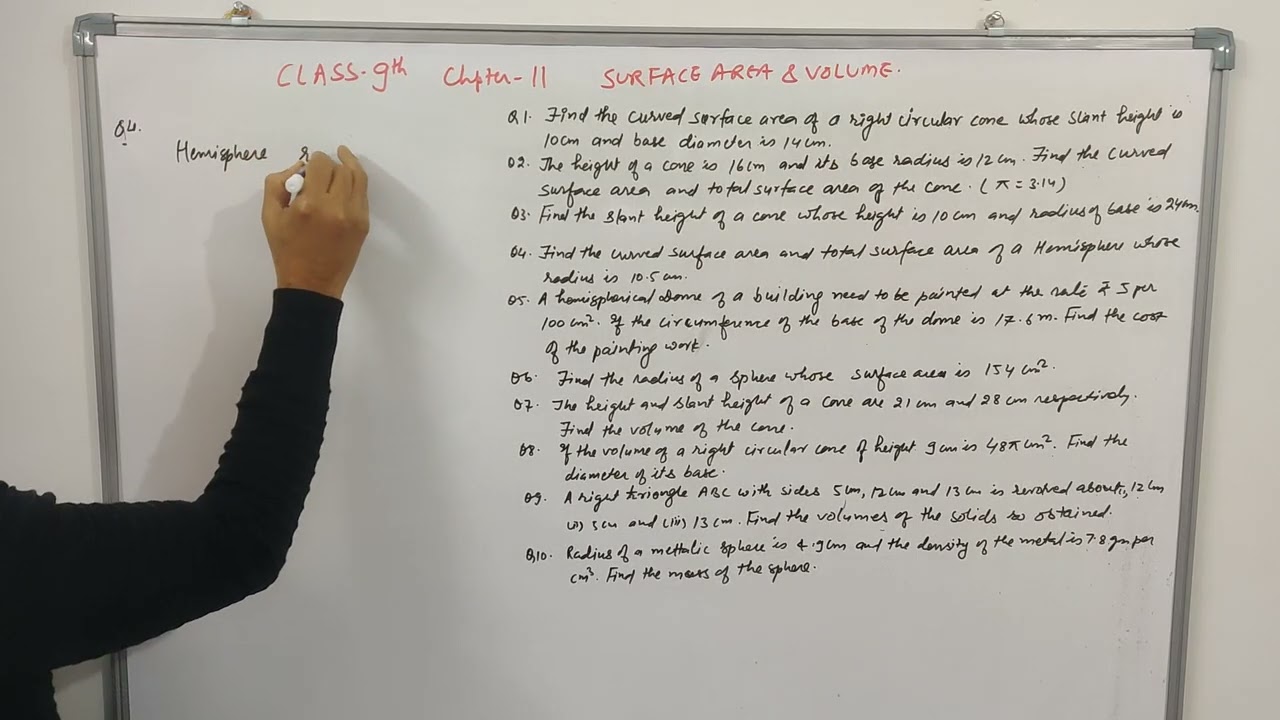 CLASS-9th Chpter-11 SURFACE AREA & VOLUME.
Q4.
Hemisphere
Q1. Find the curved surface area of a right circular cone whose slant height is
10cm and base diameter is 14cm.
Q2. The height of a cone is 16cm and its base radius is 12cm. Find the curved
surface area and total surface area of the cone. (π=3.14)
Q3. Find the slant height of a cone whose height is 10cm and radius of base is 24cm.
Q4. Find the curved surface area and total surface area of a Hemisphere whose
radius is 10.5cm.
Q5. A hemispherical dome of a building need to be painted at the rate ₹ 5 per
100cm². If the circumference of the base of the dome is 17.6m. Find the cost
of the painting work.
Q6. Find the radius of a sphere whose surface area is 154cm².
Q7. The height and slant height of a cone are 21cm and 28cm respectively.
Find the volume of the cone.
Q8. If the volume of a right circular cone of height 9cm is 48πcm². Find the
diameter of its base.
Q9. A right triangle ABC with sides 5cm, 12cm and 13cm is revolved about, 12cm
(ii) 5cm and (iii) 13cm. Find the volumes of the solids so obtained.
Q10. Radius of a mettalic sphere is 4.9cm and the density of the metal is 7.8gm per
cm³. Find the mass of the sphere.